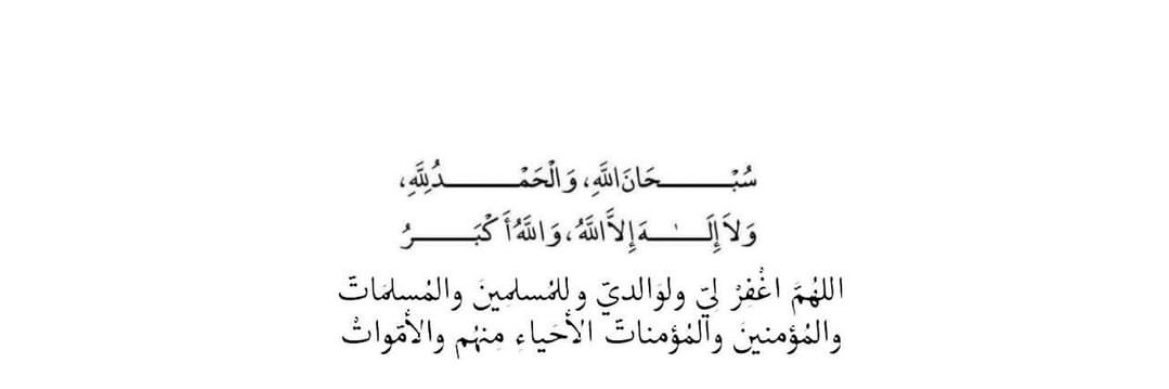 سُبْحَانَ اللَّهِ، وَالْحَمْدُ لِلَّهِ،
وَلاَ إِلَٰهَ إِلاَّ اللَّهُ، وَاللَّهُ أَكْبَرُ
اللهُمَّ اغْفِرْ لِيّ ولوَالديّ وللمُسلمِينَ والمُسلمَاتّ
والمُؤمنينَ والمُؤمناتّ الأحَياءِ مِنهُم والأمّواتْ